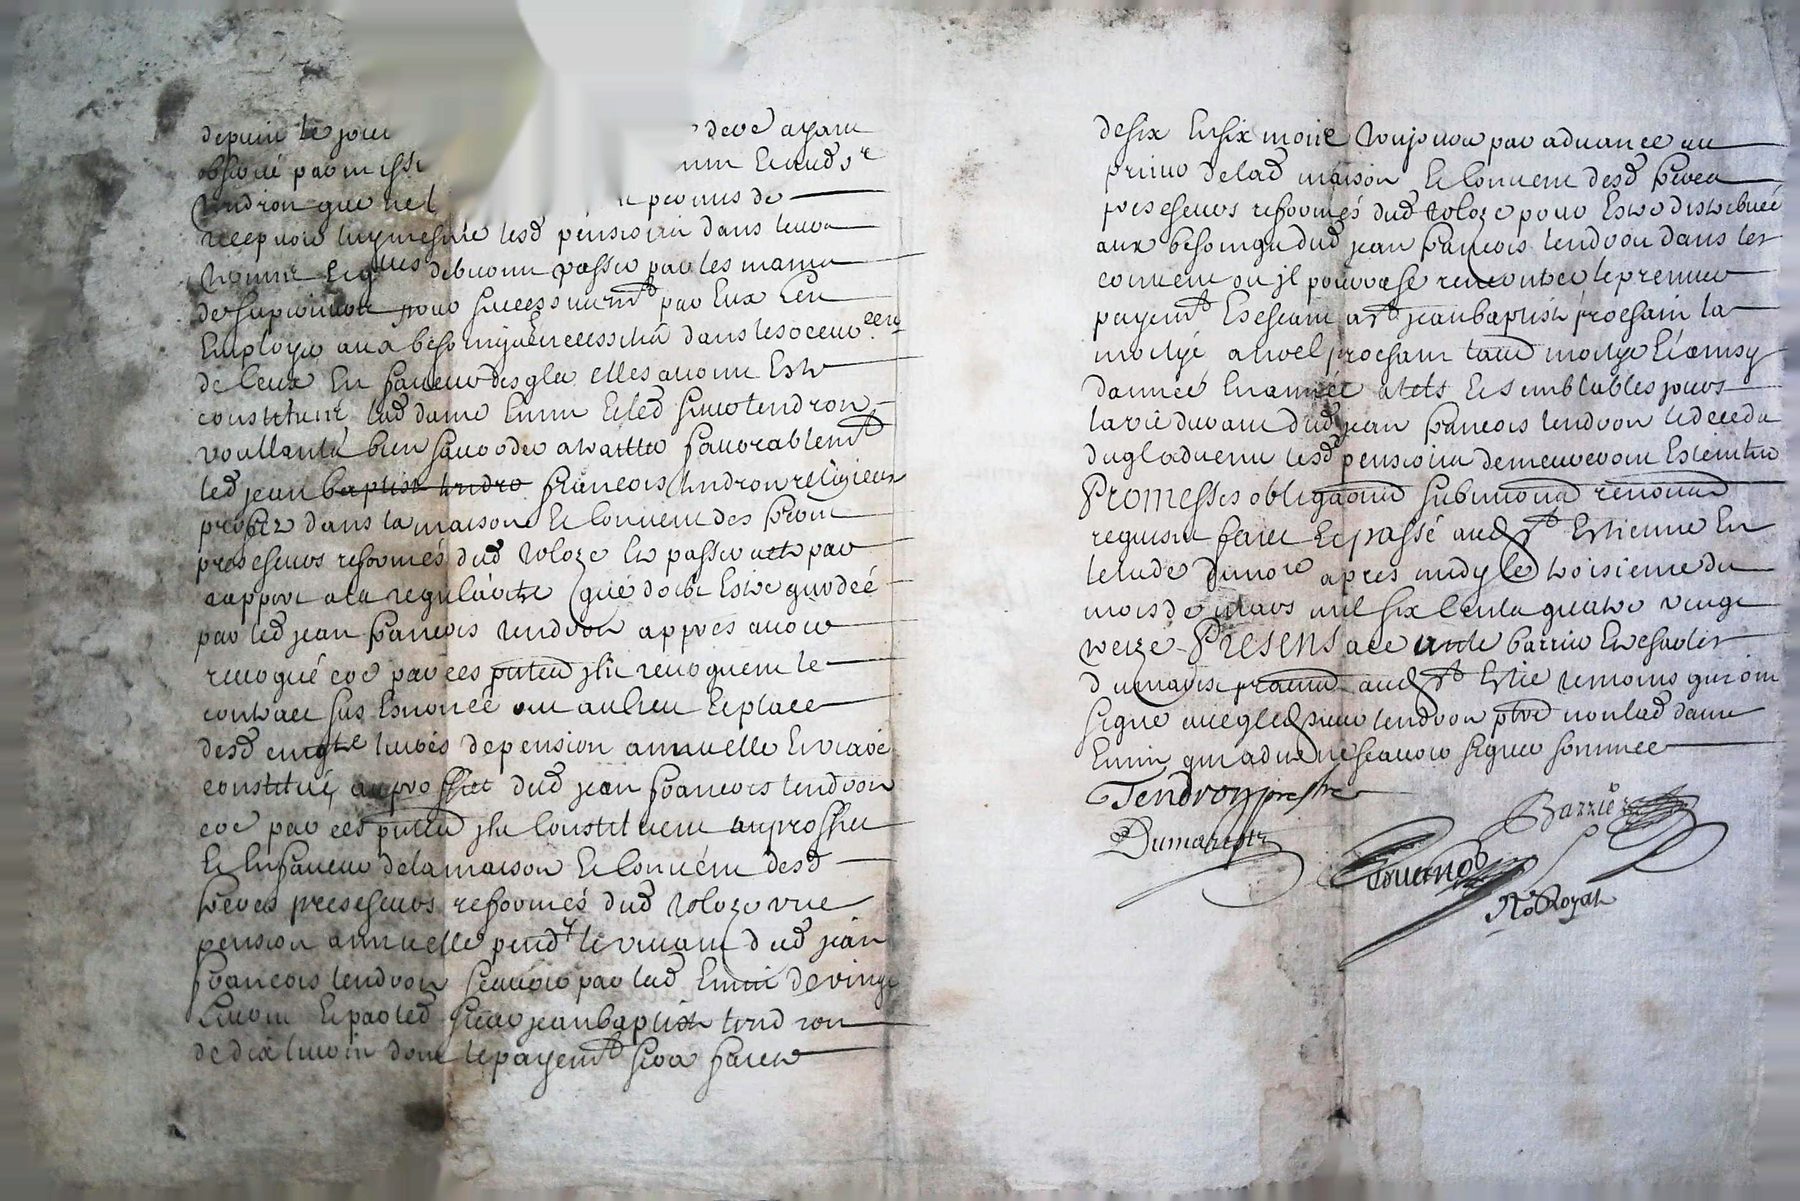 depuis le jour deve ayant
observé par missi Emin et aud sr
tendron que ne l permis de
recepvoir luy mesme lesd pensions dans leur
nomme et qu'elles debvoint passer par les mains
de superieurs pour successivemt par eux en
Employer aux besoings necessités dans les occur.ces
de leux En faveur desqls elles avoint Este
constitués lad dame Emin et led sieur tendron
voullants bien sur ce traitter favorablemt
led jean baptiste tendro françois tendron religieux
profez dans la maison et couvent des freres
prescheurs refformés dud toloze et passer acte par
rapport a la regularité que doibt Estre gardée
par led jean françois tendron appres avoir
revoqué coe par ces pntes ils revoquent le
contract sus Enoncé en au lieu et place
desd cinqte livres de pension annuelle et viagere
constitués au proffict dud jean françois tendron
coe par ces pntes ils constituent au proffict
et En faveur de la maison et couvent desd
freres prescheurs refformés dud toloze une
pension annuelle pendt le vivant dud jean
françois tendron scavoir par lad Emin de vingt
livres et par led sieur jean baptiste tendron
de dix livres dont le payemt sera faict
de six En six mois toujours par advance au
prieur de lad maison et couvent desd freres
prescheurs refformés dud toloze pour Estre distribuée
aux besoings dud jean françois tendron dans les
couvent ou il pourra se rencontrer le premier
payemt Escheant a st jean baptiste prochain la
moityé a noel prochain lautre moityé et ainsy
dannée En année a tels et semblables jours
la vie durant dud jean françois tendron le deceds
duql advenu lesd pensions demeureront Esteintes
Promesses obligaons submions renons
requises faict et passé aud st Estienne En
lestude du nore apres midy le troisieme du
mois de mars mil six cents quatre vingt
treze Presens ace barrier et
dumarest praticiens aud st Estie temoins qui ont
signé avec led sieur tendron pbre non lad dame
Emin qui a dit ne scavoir signer sommée
Tendron prestre
Barrier
Dumarest
Tournod
No Royal